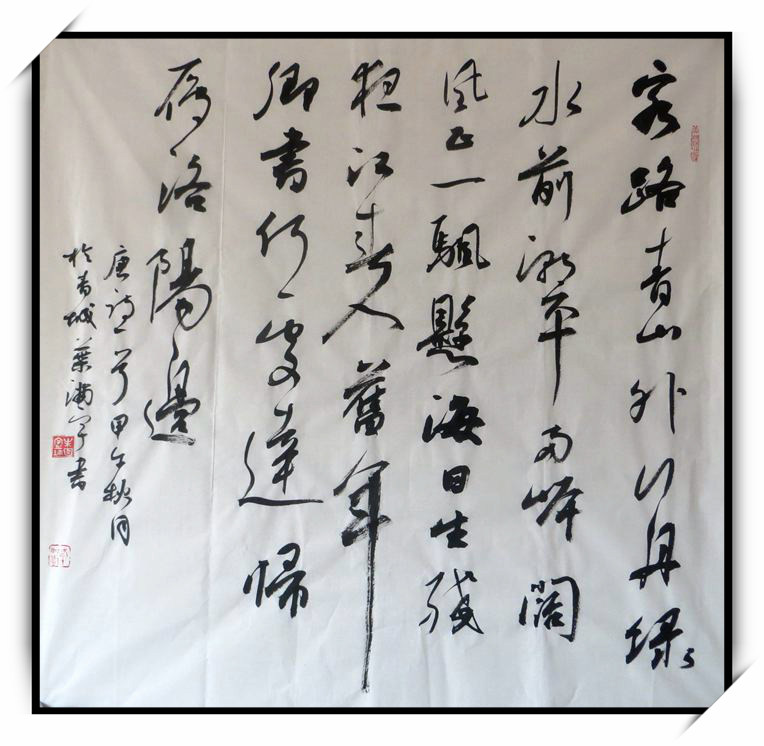 客路青山外行舟绿
水前潮平两岸阔
風正一颿懸海日生残
夜江春入舊年
鄉書何處達帰
雁洛陽邊
唐詩一首甲午秋月
於青城葉滿書